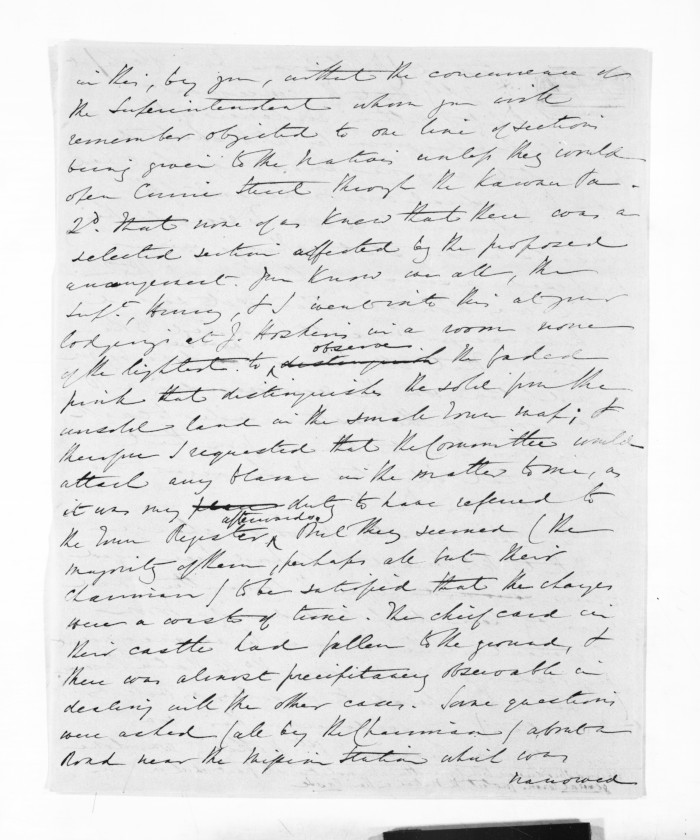 in this, by you, without the concurrence of
the Superintendent whom you will
remember objected to one line of sections
being given to the Natives unless they would
open Currie Street through the Kawau Pa -
2d. That none of us knew that there was a
selected section affected by the proposed
arrangement. You know we all, the
Supt., Henry, & I went into this at your
lodgings at J. Hoskins in a room none
of the lightest to observe distinguish the faded
pink that distinguishes the sold from the
unsold land in the small Town map; &
therefore I requested that the Committee would
attach any blame in the matter to me, as
it was my duty to have referred to
the Town Register afterwards, but they seemed (the
majority of them, perhaps all but their
Chairman) to be satisfied that the charges
were a waste of time. The chief card in
their castle had fallen to the ground, &
there was almost precipitancy observable in
dealing with the other cases. Some questions
were asked (all by the Chairman) about a
Road near the Mission Station which was
narrowed